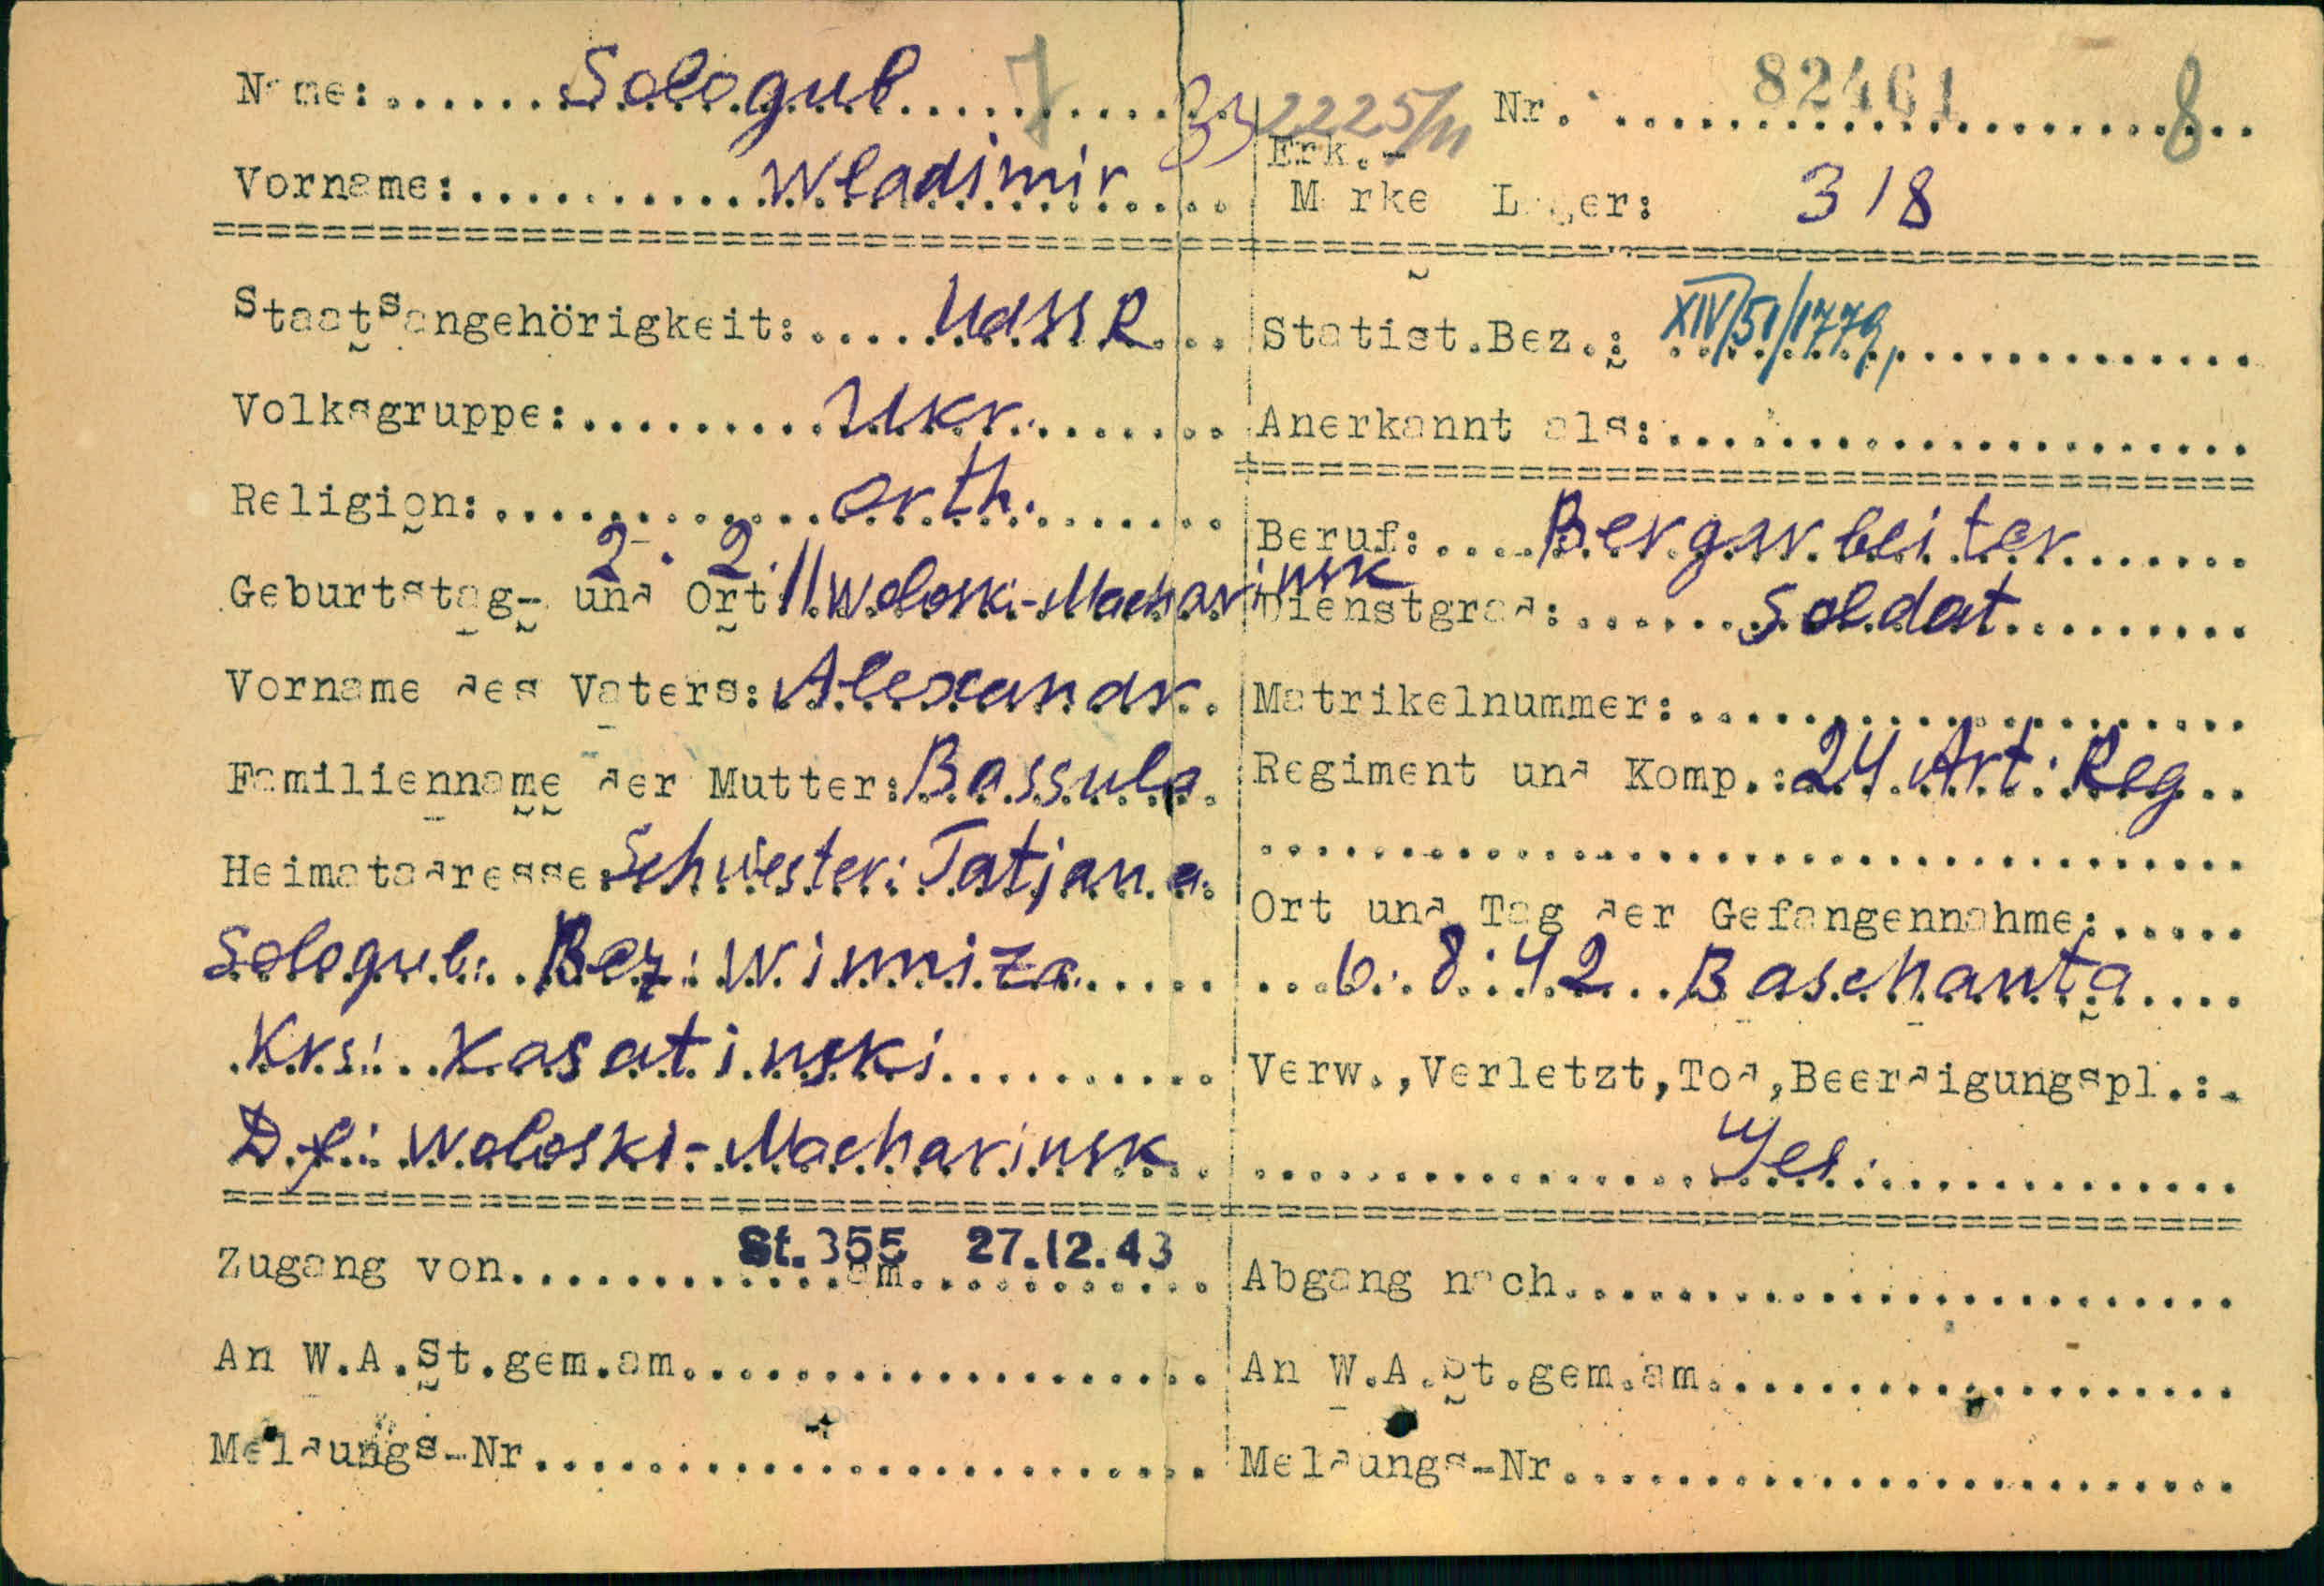 Name: Sologub 7
Vorname: Wladimir
33 2225/III
Erk.-Marke Nr. 82461 8
Lager: 318
Staatsangehörigkeit: UdSSR
Volksgruppe: Ukr.
Religion: orth.
Geburtstag- und Ort 2. 2. 11 Woloski-Macharinsk
Vorname des Vaters: Alexandr.
Familienname der Mutter: Bassula
Heimatadresse: Schwester: Tatjana
Sologub. Bez: Winniza
Krs: Kasatinski
Df: Woloski-Macharinsk
Statist.Bez.: XIV/51/1779,
Anerkannt als:
Beruf: Bergarbeiter
Dienstgrad: Soldat
Matrikelnummer:
Regiment und Komp.: 24 Art. Reg
Ort und Tag der Gefangennahme:
6. 8. 42 Baschanta
Verw.,Verletzt,Tod,Beerdigungspl.:
Ges.
Zugang von St. 355 am 27.12.43
An W.A.St.gem.am
Meldungs-Nr
Abgang nach
An W.A.St.gem.am
Meldungs-Nr